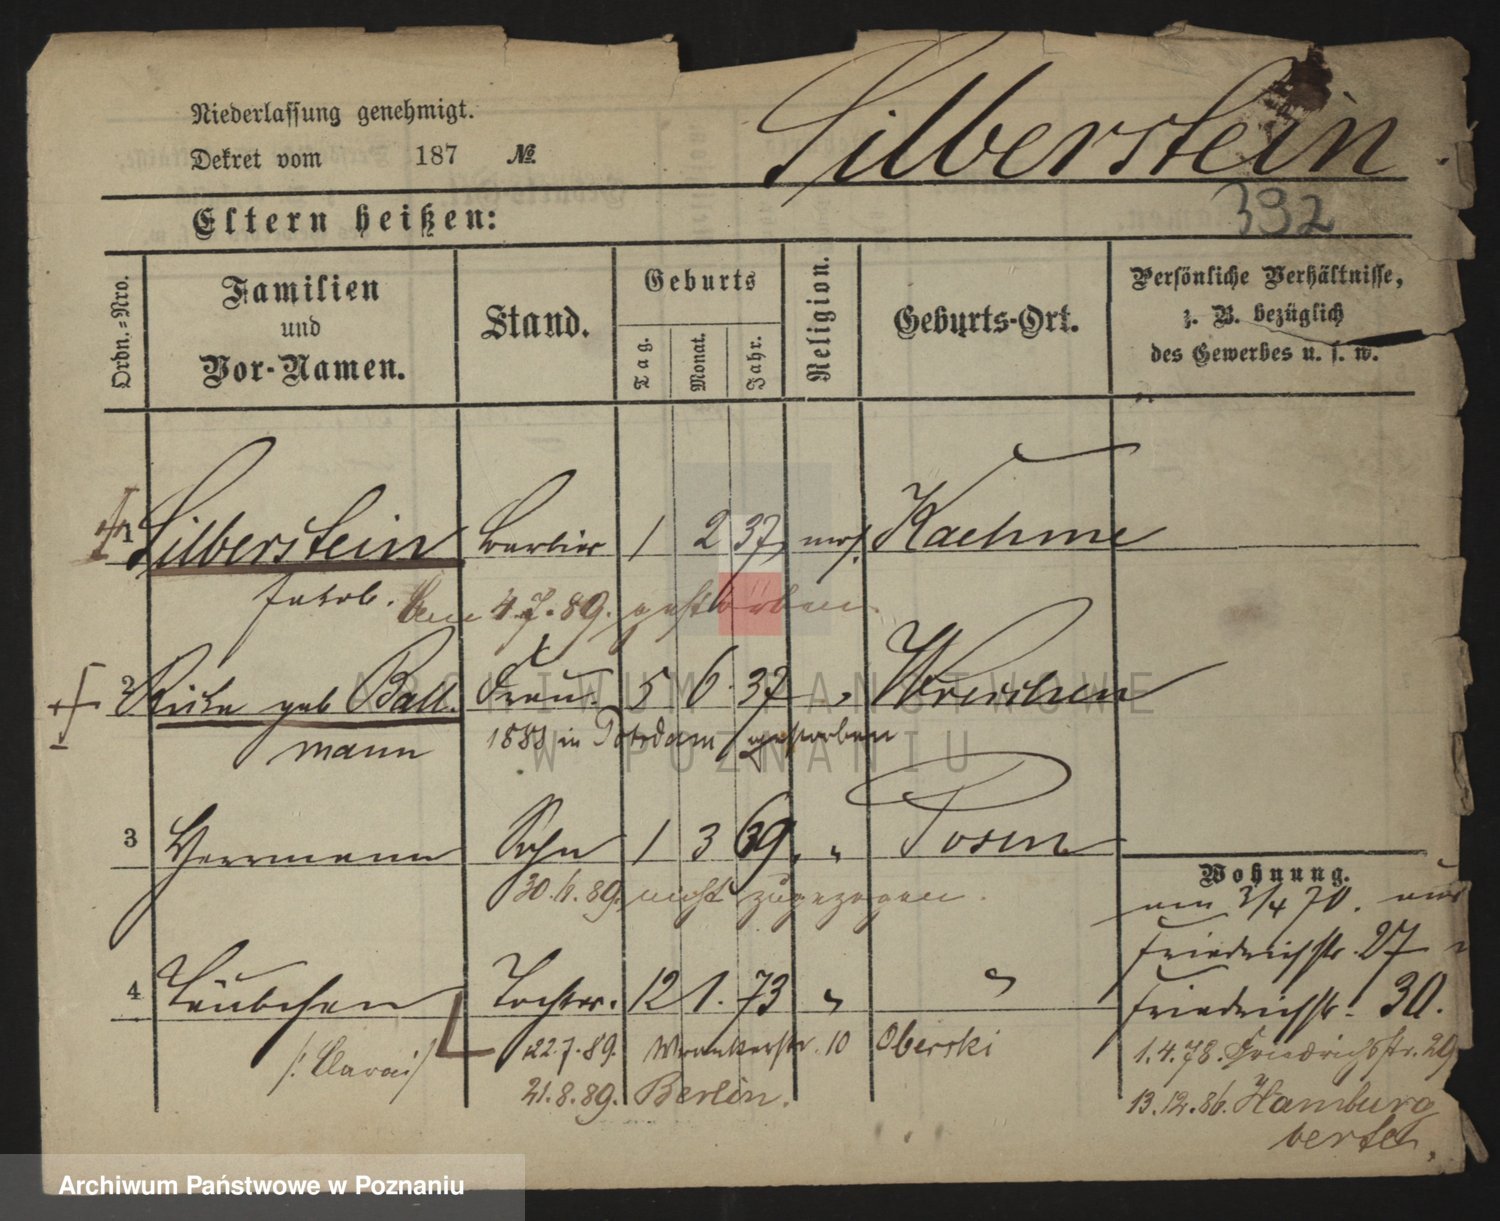 Niederlassung genehmigt.
Dekret vom 187 №
Silberstein
392
Eltern heißen:
Ordn.=Nro.
Familien
und
Vor-Namen.
Stand.
Geburts
Tag.
Monat.
Jahr.
Religion.
Geburts-Ort.
Persönliche Verhältnisse,
z. B. bezüglich
des Gewerbes u. s. w.
1 Silberstein Barbier 1 2 37, mos. Kaehme
Jakob. Am 4.7.89. gestorben.
2 geb Ball Frau. 5 6. 37 " Wreschen
mann 1883 in Potsdam gestorben
3 Herrmann Sohn 1 3 69. " Posen
30.6.89. nicht zugezogen.
Wohnung.
am 2/4 70. aus
Friedrichstr. 27
Friedrichstr. 30.
4 Täubchen Tochter. 12 1. 73 " "
/: Clara :/ 22.7.89. Wronkerstr. 10 Oberski
21.8.89. Berlin.
1.4.78. Friedrichsstr. 29
13.12.86. Hamburg
ARCHIWUM PAŃSTWOWE
W POZNANIU
Archiwum Państwowe w Poznaniu